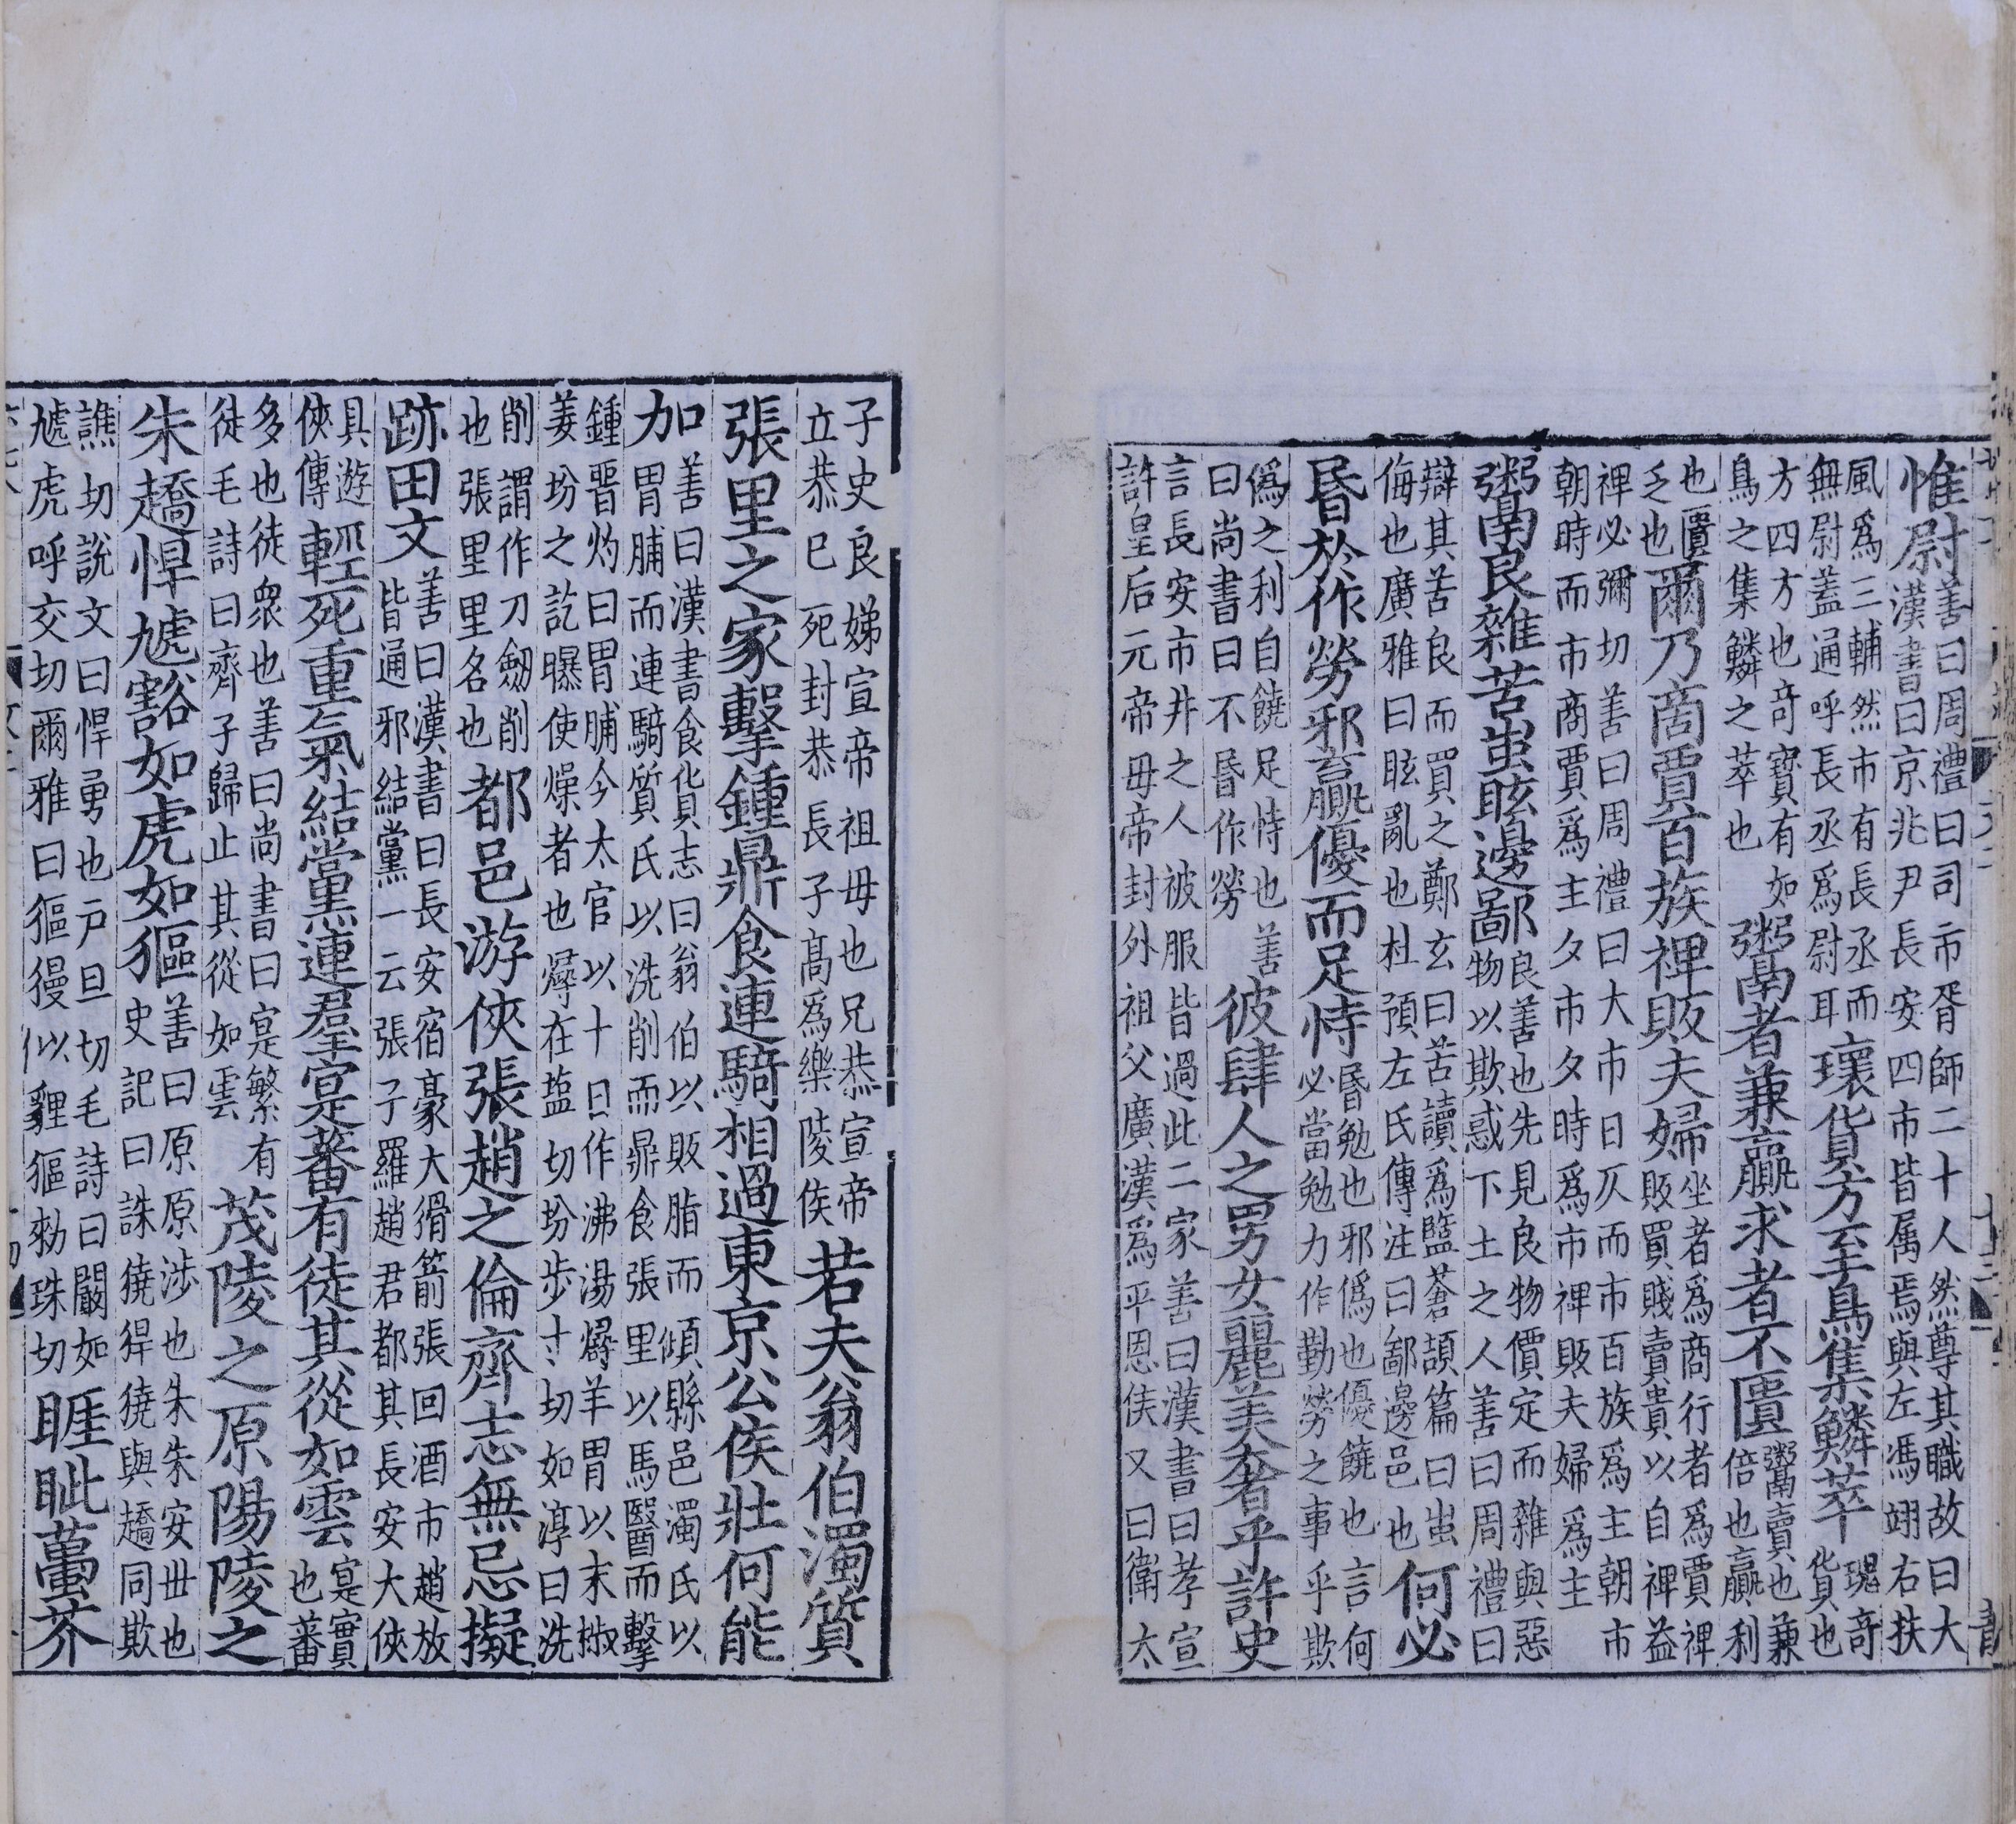 惟尉善曰周禮曰司市胥師二十人然尊其職故曰大
漢書曰京兆尹長安四市皆属焉與左馮翊右扶
風爲三輔然市有長丞而
無尉蓋通呼長丞爲尉耳
瓌貨方至鳥集鱗萃瑰竒
貨也
方四方也竒寳有如
鳥之集鱗之萃也
鬻者兼贏求者不匱鬻賣也兼
倍也贏利
也匱
乏也
爾乃啇賈百族裨販夫婦坐者爲商行者爲賈裨
販買賤賣貴以自裨益
裨必彌切善曰周禮曰大市日仄而市百族爲主朝市
朝時而市商賈爲主夕市夕時爲市裨販夫婦爲主
鬻良雜苦蚩眩邊鄙良善也先見良物價定而雜與惡
物以欺惑下土之人善曰周禮曰
辯其苦良而買之鄭玄曰苦讀爲盬蒼頡篇曰蚩
侮也廣雅曰眩亂也杜預左氏傳注曰鄙邊邑也
何必
昬於作勞邪贏優而足恃昬勉也邪僞也優饒也言何
必當勉力作勤勞之事乎欺
僞之利自饒足恃也善
曰尚書曰不昬作勞
彼肆人之男女麗美奢乎許史
言長安市井之人被服皆過此二家善曰漢書曰孝宣
許皇后元帝母帝封外祖父廣漢爲平恩侯又曰衛太
子史良娣宣帝祖母也兄恭宣帝
立恭已死封恭長子髙爲樂陵侯
若夫翁伯濁質
張里之家擊鍾鼎食連騎相過東京公侯壯何能
加善曰漢書食貨志曰翁伯以販脂而傾縣邑濁氏以
胃脯而連騎質氏以洗削而鼎食張里以馬醫而擊
鍾晋灼曰胃脯今太官以十日作沸湯燖羊胃以末椒
姜坋之訖曝使燥者也燖在鹽切坋步寸切如淳曰洗
削謂作刀劒削
也張里里名也
都邑游俠張趙之倫齊志無忌擬
跡田文善曰漢書曰長安宿豪大猾箭張回酒市趙放
皆通邪結黨一云張子羅趙君都其長安大俠
具遊
俠傳
輕死重氣結黨連羣寔蕃有徒其從如雲寔實
也蕃
多也徒衆也善曰尚書曰寔繁有
徒毛詩曰齊子歸止其從如雲
茂陵之原陽陵之
朱趫悍虓豁如虎如貙善曰原原渉也朱朱安世也
史記曰誅獟猂獟與趫同欺
譙切說文曰悍勇也户旦切毛詩曰闞如
虓虎呼交切爾雅曰貙獌似貍貙勑珠切
睚眦蠆芥